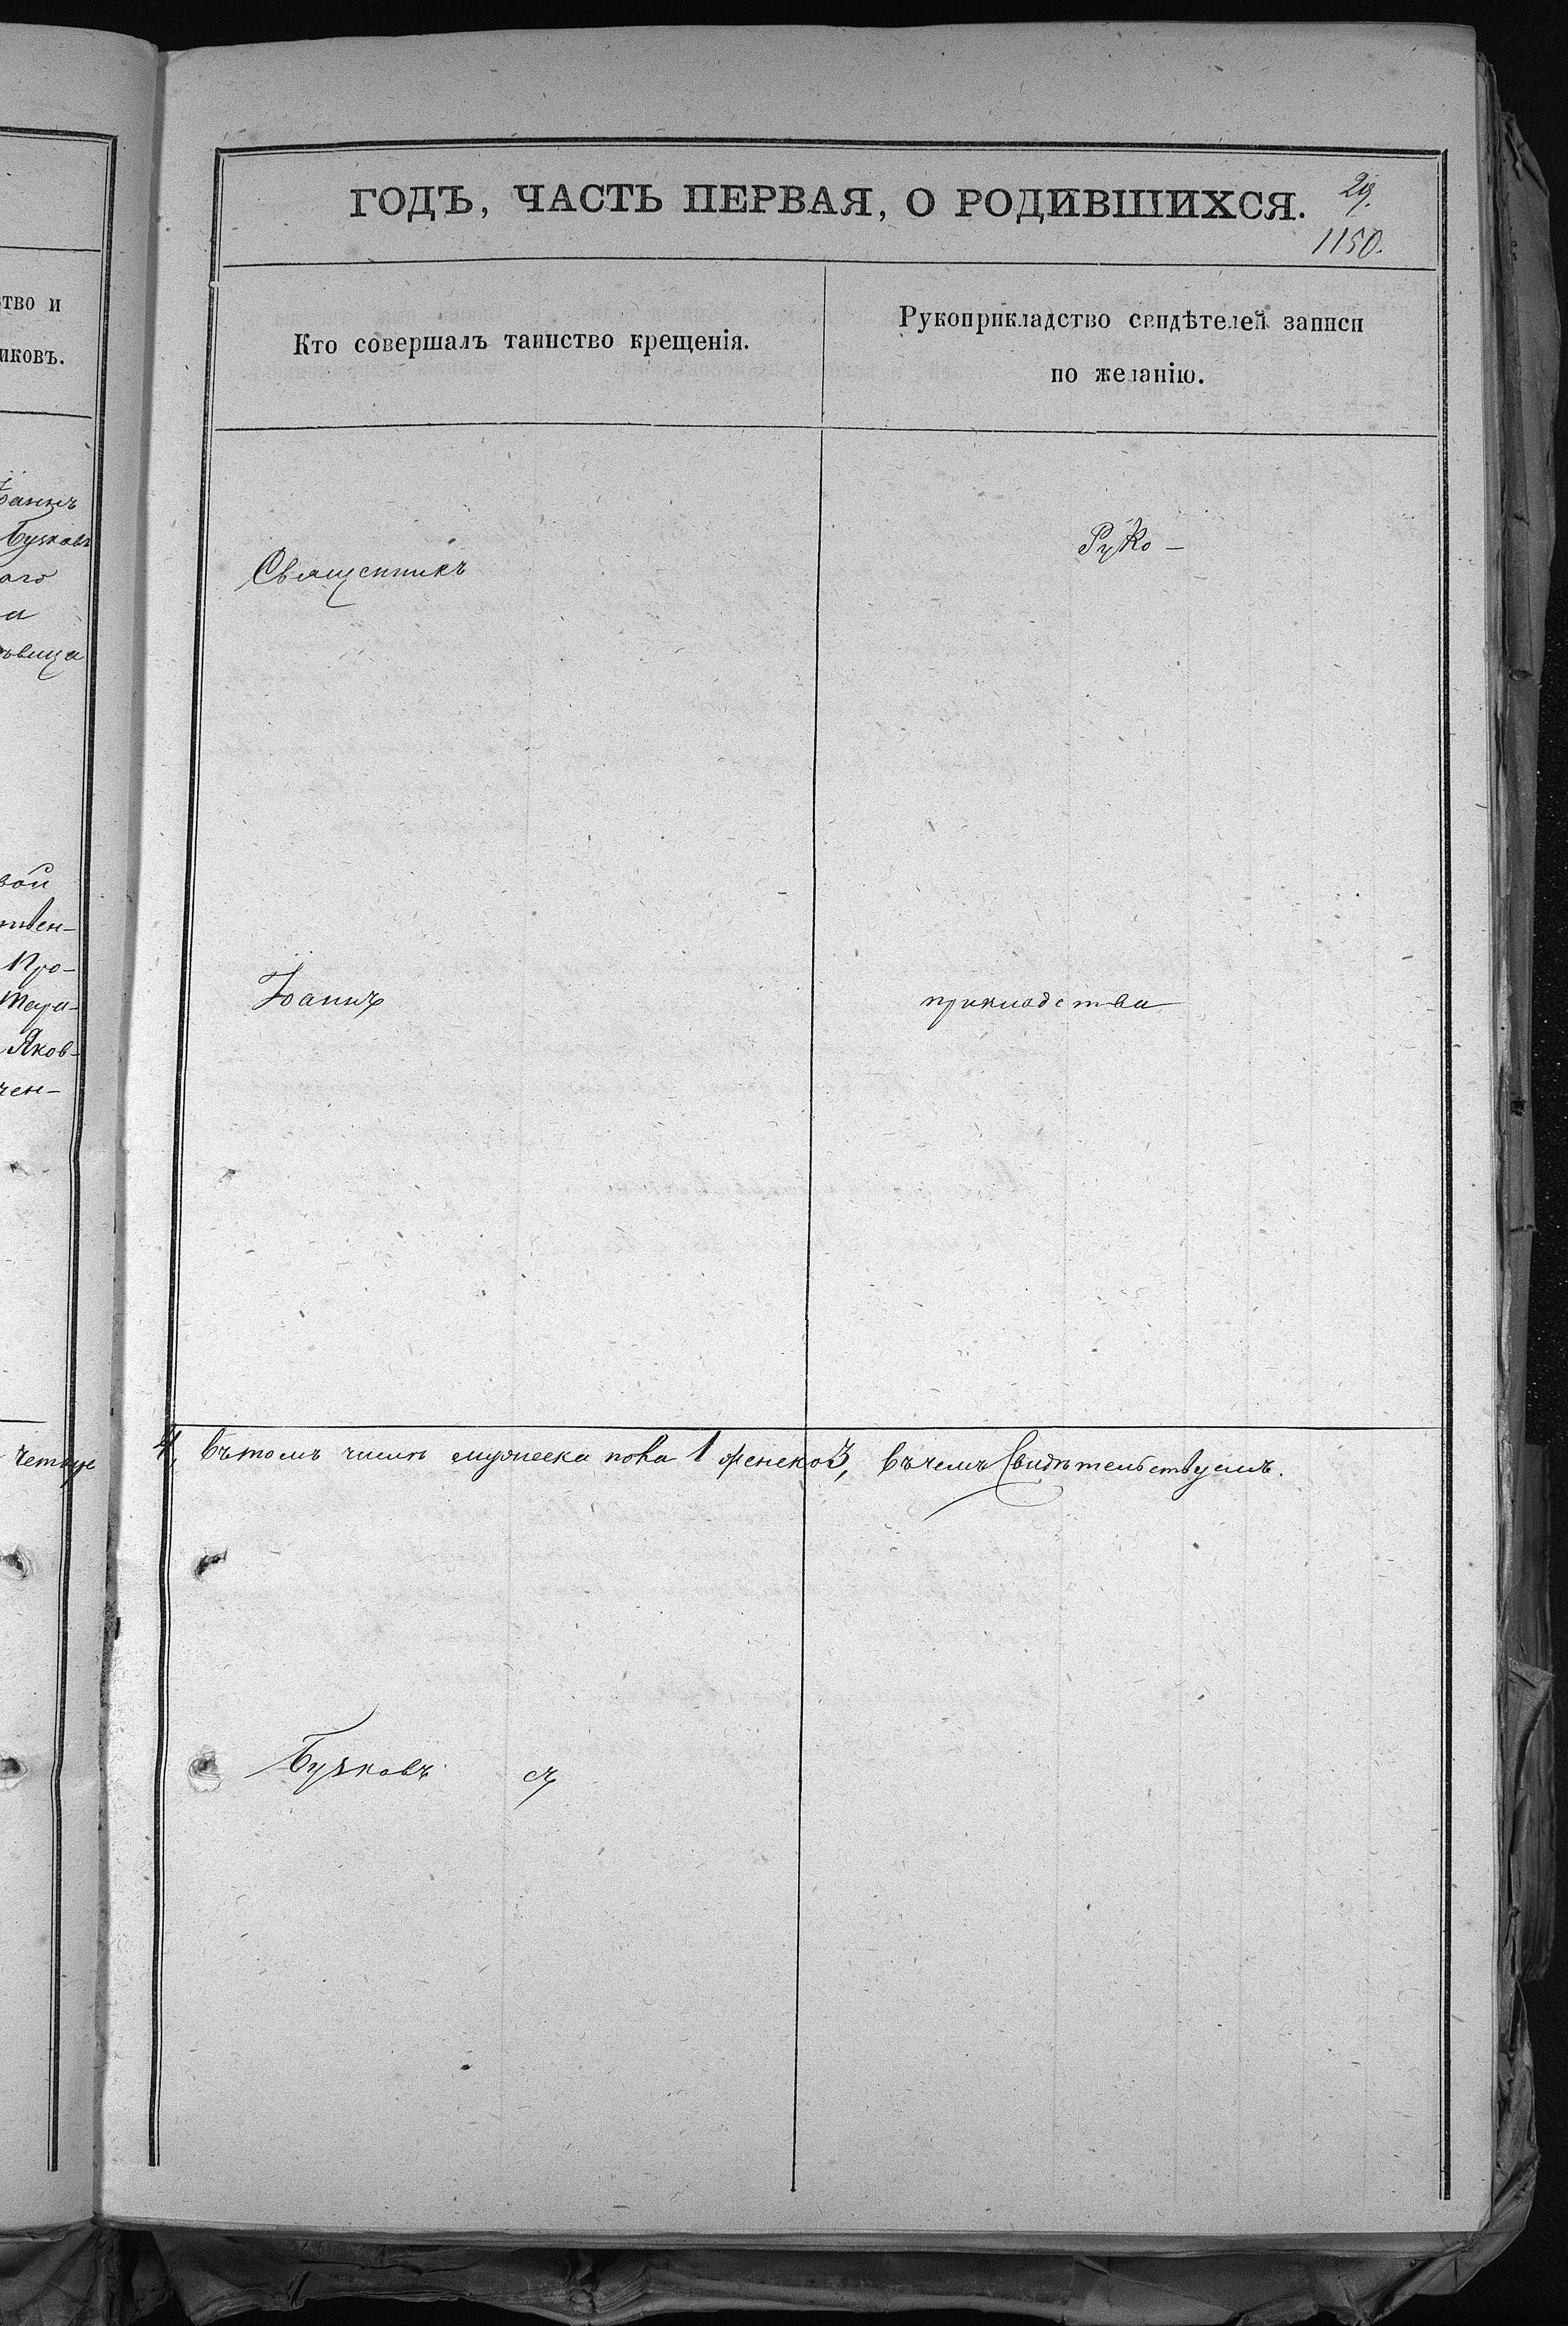 тво и
иковъ.
Іоаннъ
Бучковъ
ого
а
вица
вой
твен-
Про-
Яков-
чен-
четыре
ГОДЪ, ЧАСТЬ ПЕРВАЯ, О РОДИВШИХСЯ.
29.
1150.
Кто совершалъ таинство крещенія.
Рукоприкладство свидѣтелей записи
по желанію.
Священникъ
Руко-
Іоаннъ
прикладства
4, вътомъ числѣ мужеска пола 1 женско 3, въчемъ Свидѣтельствуемъ.
Бучковъ съ